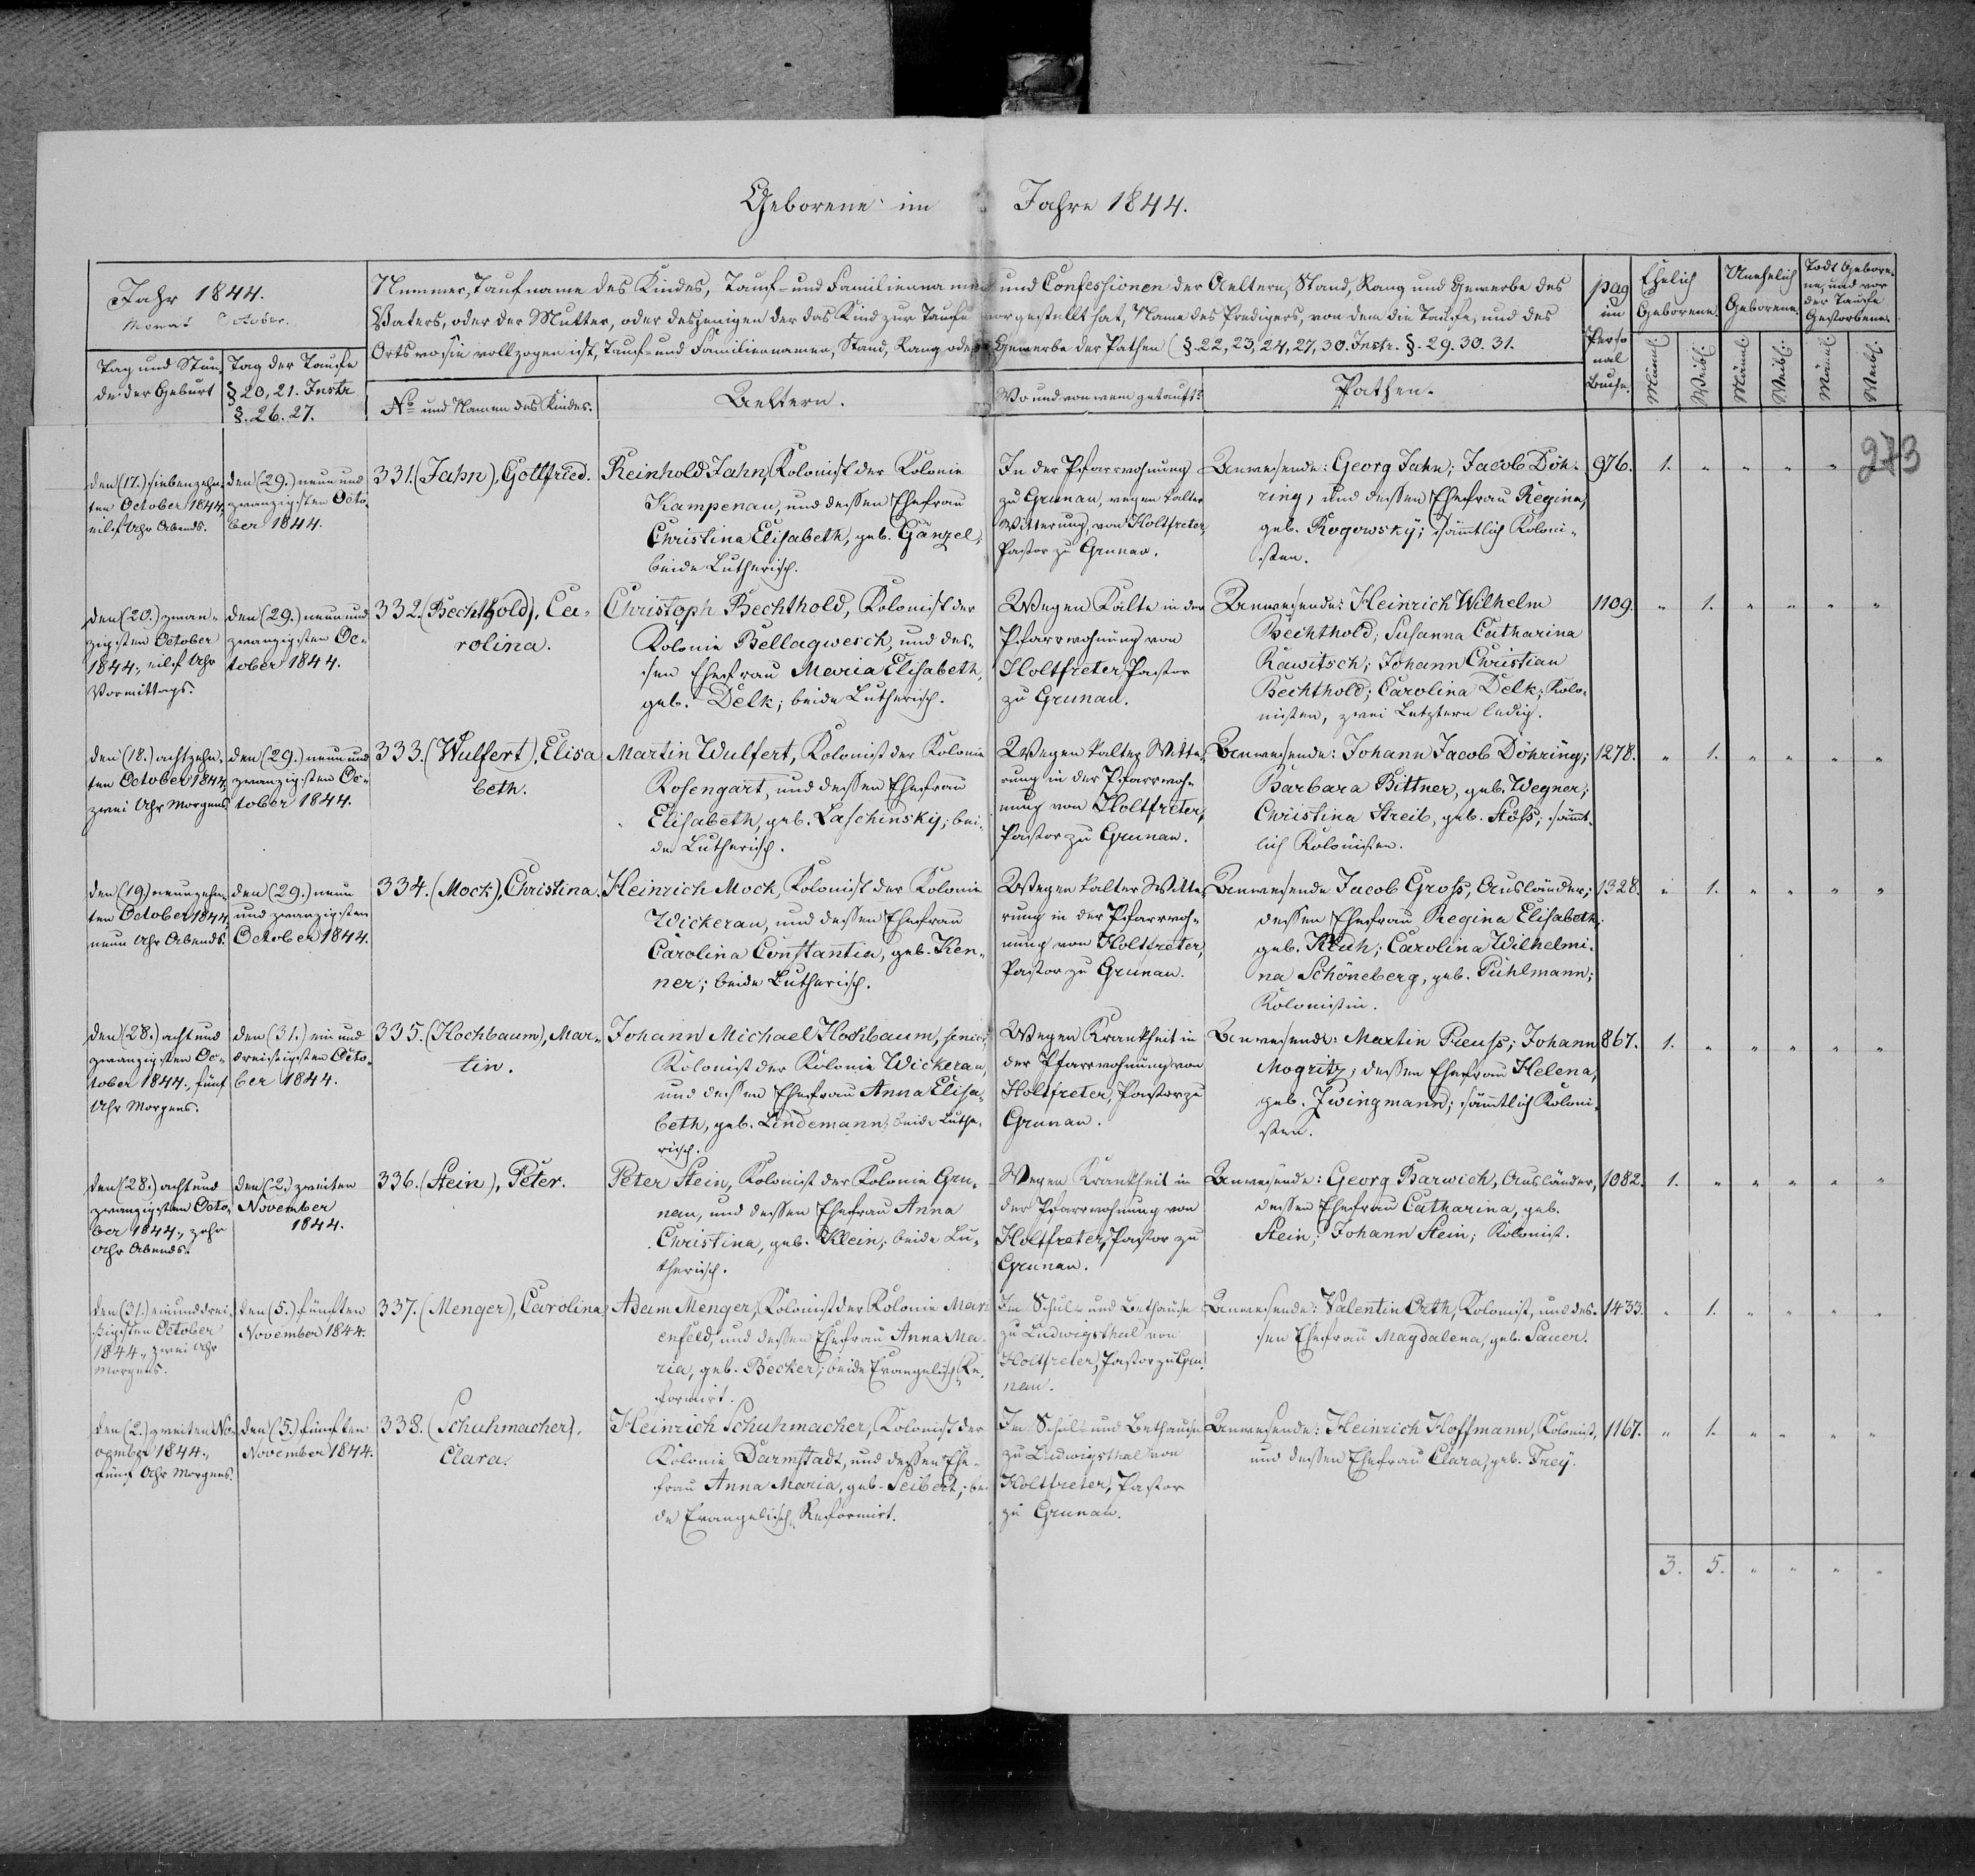 Geborene im Jahre 1844.
Jahr 1844.
Monat October.
Nummer, Taufname des Kindes, Tauf- und Familiennamen und Confessionen der Aeltern, Stand, Rang und Gewerbe des
Vaters, oder der Mutter, oder desjenigen der das Kind zur Taufe vorgestellt hat, Name des Predigers, von dem die Taufe, und des
Orts wo sie vollzogen ist, Tauf- und Familiennamen, Stand, Rang oder Gewerbe der Pathen (§. 22, 23, 24, 27, 30. Instr. §. 29. 30. 31.
pag
im
Perso
nal
Buche.
Ehelich
Geborene.
Unehelich
Geborene.
Todt Gebore-
ne, und vor
der Taufe
Gestorbene.
Tag und Stun-
de der Geburt
Tag der Taufe
§ 20, 21. Instr
§. 26. 27.
No und Namen des Kindes.
Aeltern.
Wo und von wem getauft?
Pathen.
Männl.
Weibl.
Männl.
Weibl.
Männl.
Weibl.
273
den (17.) siebenzehn-
ten October 1844,
eilf Uhr Abends.
den (29.) neun und
zwanzigsten Octo-
ber 1844.
331. (Jahn), Gottfried.
Reinhold Jahn, Kolonist der Kolonie
Kampenau, und dessen Ehefrau
Christina Elisabeth, geb. Gänzel,
beide Lutherisch.
In der Pfarrwohnung
zu Grunau, wegen kalter
Witterung, von Holtfreter,
Pastor zu Grunau.
Anwesende: Georg Jahn; Jacob Döh-
ring, und dessen Ehefrau Regina,
geb. Rogowsky; sämtlich Koloni-
sten.
976. 1. " " " "
den (20.) zwan-
zigsten October
1844., eilf Uhr
Vormittags.
den (29.) neun und
zwanzigsten Oc-
tober 1844.
332. (Bechthold), Ca-
rolina.
Christoph Bechthold, Kolonist der
Kolonie Bellagwesch, und des-
sen Ehefrau Maria Elisabeth,
geb. Delk; beide Lutherisch.
Wegen Kälte in der
Pfarrwohnung von
Holtfreter Pastor
zu Grunau.
Anwesende: Heinrich Wilhelm
Bechthold; Susanna Catharina
Rawitsch; Johann Christian
Bechthold; Carolina Delk; Kolo-
nisten, zwei Letztern ledig.
1109. " 1. " " " "
den (18.) achtzehn-
ten October 1844,
zwei Uhr Morgens
den (29.) neun und
zwanzigsten Oc-
tober 1844.
333. (Wulfert), Elisa
beth.
Martin Wulfert, Kolonist der Kolonie
Rosengart, und dessen Ehefrau
Elisabeth, geb. Laschinsky; bei-
de Lutherisch.
Wegen kalter Witte-
rung in der Pfarrwoh-
nung von Holtfreter,
Pastor zu Grunau.
Anwesende: Johann Jacob Döhring;
Barbara Bittner, geb. Wegner;
Christina Streib, geb. Stöss; sämt-
lich Kolonisten.
1278. " 1. " " " "
den (19) neunzehn-
ten October 1844,
neun Uhr Abends.
den (29.) neun
und zwanzigsten
October 1844.
334. (Mock), Christina.
Heinrich Mock, Kolonist der Kolonie
Wickerau, und dessen Ehefrau
Carolina Constantia, geb. Ken-
ner; beide Lutherisch.
Wegen kalter Witte-
rung in der Pfarrwoh-
nung von Holtfreter,
Pastor zu Grunau.
Anwesende Jacob Gross, Ausländer;
dessen Ehefrau Regina Elisabeth,
geb. Kluh; Carolina Wilhelmi-
na Schöneberg, geb. Puhlmann;
Kolonistin.
1328. " 1. " " " "
den (28.) acht und
zwanzigsten Oc-
tober 1844., fünf
Uhr Morgens.
den (31.) ein und
dreissigsten Octo-
ber 1844.
335. (Hochbaum), Mar-
tin.
Johann Michael Hochbaum, senior,
Kolonist der Kolonie Wickerau,
und dessen Ehefrau Anna Elisa-
beth, geb. Lindemann; beide Luthe-
risch.
Wegen Krankheit in
der Pfarrwohnung von
Holtfreter, Pastor zu
Grunau.
Anwesende: Martin Preuss; Johann
Mogritz, dessen Ehefrau Helena,
geb. Zwingmann; sämtlich Koloni-
sten.
867. 1. " " " " "
den (28.) acht und
zwanzigsten Octo-
ber 1844., zehn
Uhr Abends.
den (2.) zweiten
November
1844.
336. (Stein), Peter.
Peter Stein, Kolonist der Kolonie Gru-
nau, und dessen Ehefrau Anna
Christina, geb. Klein; beide Lu-
therisch.
Wegen Krankheit in
der Pfarrwohnung von
Holtfreter, Pastor zu
Grunau.
Anwesende: Georg Barwich, Ausländer,
dessen Ehefrau Catharina, geb.
Stein; Johann Stein; Kolonist.
1082. 1. " " " " "
den (31.) ein und drei-
ßigsten October
1844., zwei Uhr
Morgens.
den (5.) fünften
November 1844.
337. (Menger), Carolina
Adam Menger, Kolonist der Kolonie Mari
enfeld, und dessen Ehefrau Anna Ma-
ria, geb. Becker; beide Evangelisch-Re-
formirt.
Im Schul- und Bethause
zu Ludwigsthal von
Holtfreter, Pastor zu Gru-
nau.
Anwesende: Valentin Orth, Kolonist, und des-
sen Ehefrau Magdalena, geb. Sauer.
1433. " 1. " " " "
den (2.) zweiten No-
vember 1844.,
fünf Uhr Morgens.
den (5.) fünften
November 1844.
338. (Schuhmacher),
Clara.
Heinrich Schuhmacher, Kolonist der
Kolonie Darmstadt, und dessen Ehe-
frau Anna Maria, geb. Seibert; bei
de Evangelisch-Reformirt.
Im Schul- und Bethause
zu Ludwigsthal von
Holtfreter, Pastor
zu Grunau.
Anwesende: Heinrich Hoffmann, Kolonist,
und dessen Ehefrau Clara, geb. Frey.
1167. " 1. " " " "
3. 5. " " " "